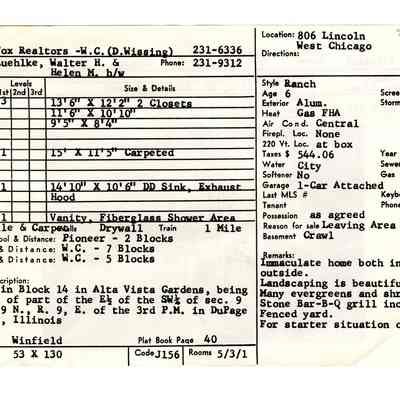 ox Realtors -W.C.(D.Wissing) 231-6336
uehlke, Walter H. & Phone: 231-9312
Helen M. h/w
Levels
1st 2nd 3rd Size & Details
3 13'6" X 12'2" 2 Closets
11'6" X 10'10"
9'5" X 8'4"
1 15' X 11'5" Carpeted
1 14'10" X 10'6" DD Sink, Exhaust
Hood
1 Vanity, Fiberglass Shower Area
le & Carpet Walls Drywall Train 1 Mile
ool & Distance: Pioneer - 2 Blocks
& Distance: W.C. - 7 Blocks
& Distance: W.C. - 5 Blocks
cription:
in Block 14 in Alta Vista Gardens, being
of part of the E½ of the SW¼ of sec. 9
9 N., R. 9, E. of the 3rd P.M. in DuPage
, Illinois
Winfield Plat Book Page 40
53 X 130 Code J156 Rooms 5/3/1
Location: 806 Lincoln
West Chicago
Directions:
Style Ranch
Age 6 Scree
Exterior Alum. Storm
Heat Gas FHA
Air Cond. Central
Firepl. Loc. None
220 Vt. Loc. at box
Taxes $ 544.06 Year
Water City Sewer
Softener No Gas
Garage 1-Car Attached
Last MLS # Keybo
Tenant Phone
Possession as agreed
Reason for sale Leaving Area
Basement Crawl
Remarks:
Immaculate home both in
outside.
Landscaping is beautifu
Many evergreens and shr
Stone Bar-B-Q grill inc
Fenced yard.
For starter situation o